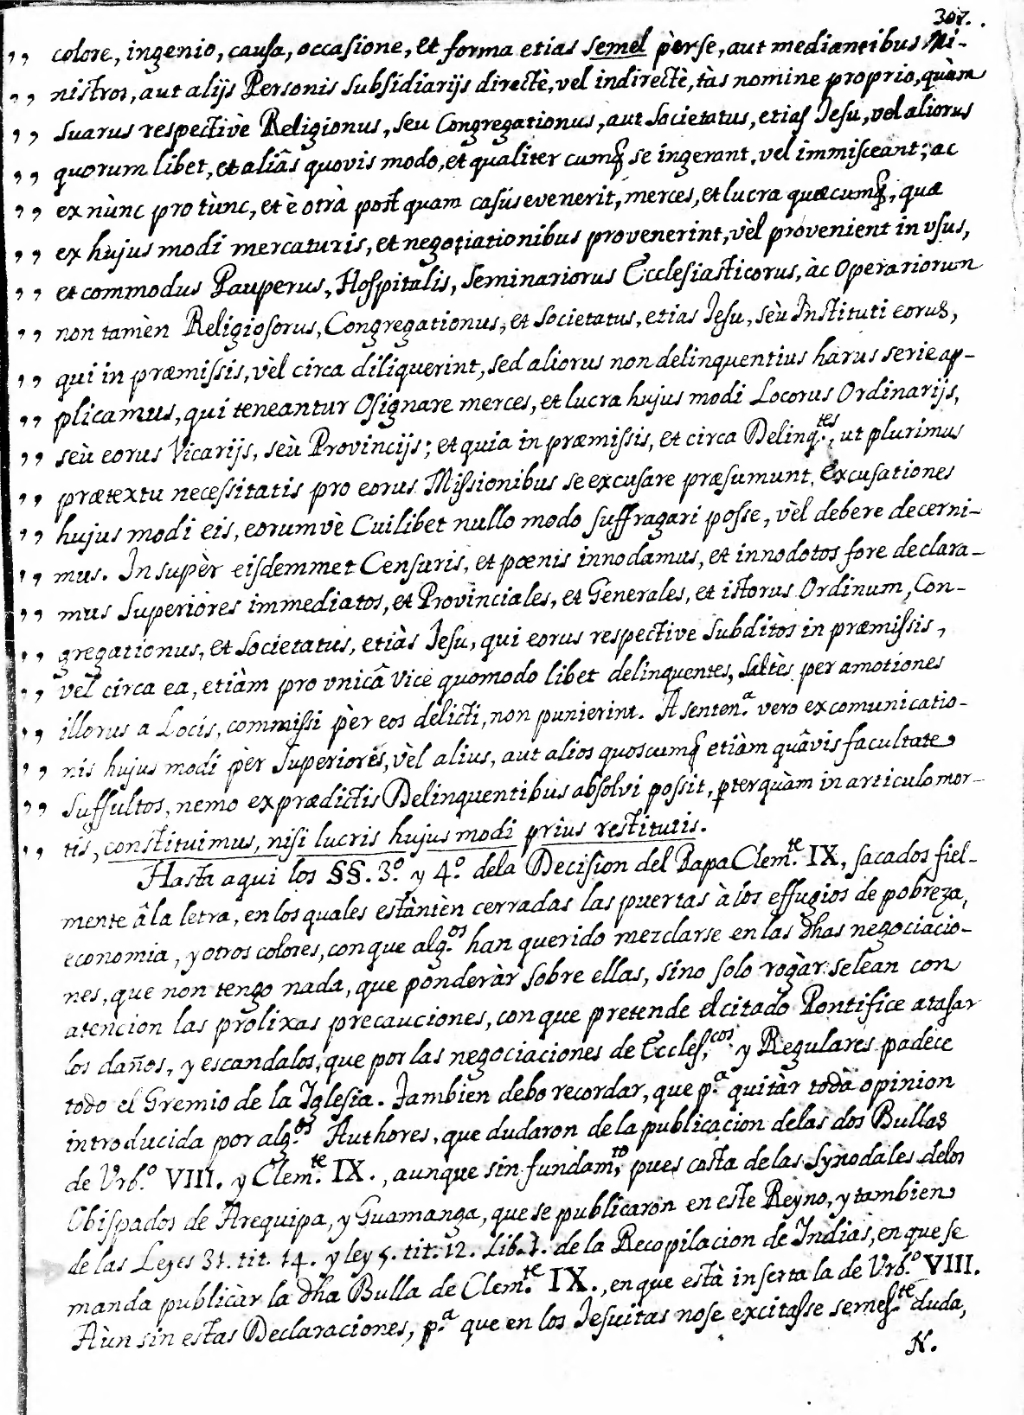 307.
,, colore, ingenio, causa, occasione, et forma etias semel pèrse, aut mediantibus Mi-
,, nistros, aut alijs Personis subsidiarijs directè, vel indirectè, tàs nomine proprio, quàm
,, suarus respectivè Religionus, seu Congregationus, aut Societatus, etias Jesu, vel aliorus
,, quorum libet, et aliâs quovis modo, et qualiter cumq̃ se ingerant, vel immisceant; ac
,, ex nùnc pro tùnc, et è otrà post quam casus evenerit, merces, et lucra quæcumq̃, quæ
,, ex hujus modi mercaturis, et negotiationibus provenerint, vèl provenient in vsus,
,, et commodus Pauperus, Hospitalis, Seminariorus Ecclesiasticorus, àc Operariorum
,, non tamèn Religiosorus, Congregationus, et Societatus, etias Jesu, sèu Instituti eorus,
,, qui in præmissis, vèl circa diliquerint, sed aliorus non delinquentius harus serie ap-
,, plicamus, qui teneantur Osignare merces, et lucra hujus modi Locorus Ordinarijs,
,, sèu eorus Vicarijs, sèu Provincijs; et quia in præmissis, et circa Delinq.tes, ut plurimus
,, prætextu necessitatis pro eorus Missionibus se excusare præsumunt, excusationes
,, hujus modi eis, eorumvè Cuilibet nullo modo suffragari posse, vèl debere decerni-
,, mus. Insupèr eisdemmet Censuris, et pœnis innodamus, et innodotos fore declara-
,, mus Superiores immediatos, et Provinciales, et Generales, et istorus Ordinum, Con-
,, gregationus, et Societatus, etiàs Jesu, qui eorus respective Subditos in præmissis,
,, vel circa ea, etiàm pro vnicâ vice quomodo libet delinquentes, saltès per amotiones
,, illorus a Locis, commissi pèr eos delicti, non punierint. A senten.a vero excomunicatio-
,, nis hujus modi pèr Superiores, vèl alius, aut alios quoscumq̃ etiàm quâvis facultate
,, suffultos, nemo ex prædictis Delinquentibus absolvi possit, p̃terquàm in articulo mor-
,, tis, constituimus, nisi lucris hujus modi prius restitutis.
Hasta aqui los §§. 3.º y 4.º dela Decision del Papa Clem.te IX, sacados fiel-
mente âla letra, en los quales estàntèn cerradas las puertas à los effugios de pobreza,
economia, y otros colores, con que alg.os han querido mezclarse en las dhas negociacio-
nes, que non tengo nada, que ponderàr sobre ellas, sino solo rogàr se lean con
atencion las prolixas precauciones, con que pretende el citado Pontifice atajar
los daños, y escandalos, que por las negociaciones de Ecclesi.cos y Regulares padece
todo el Gremio de la Iglesia. Tambien debo recordar, que p.a quitàr todà opinion
introducida por alg.os Authores, que dudaron de la publicacion delas dos Bullas
de Vrb.o VIII. y Clem.te IX., aunque sin fundam.to, pues costa de las Synodales delos
Obispados de Arequipa, y Guamanga, que se publicaron en este Reyno, y tambien
de las Leyes 31. tit. 14. y ley 5. tit. 12. Lib. 1. de la Recopilacion de Indias, en que se
manda publicàr la dha Bulla de Clem.te IX., en que està inserta la de Vrb.o VIII.
Aùn sin estas Declaraciones, p.a que en los Jesuitas nose excitasse semej.te duda,
N.